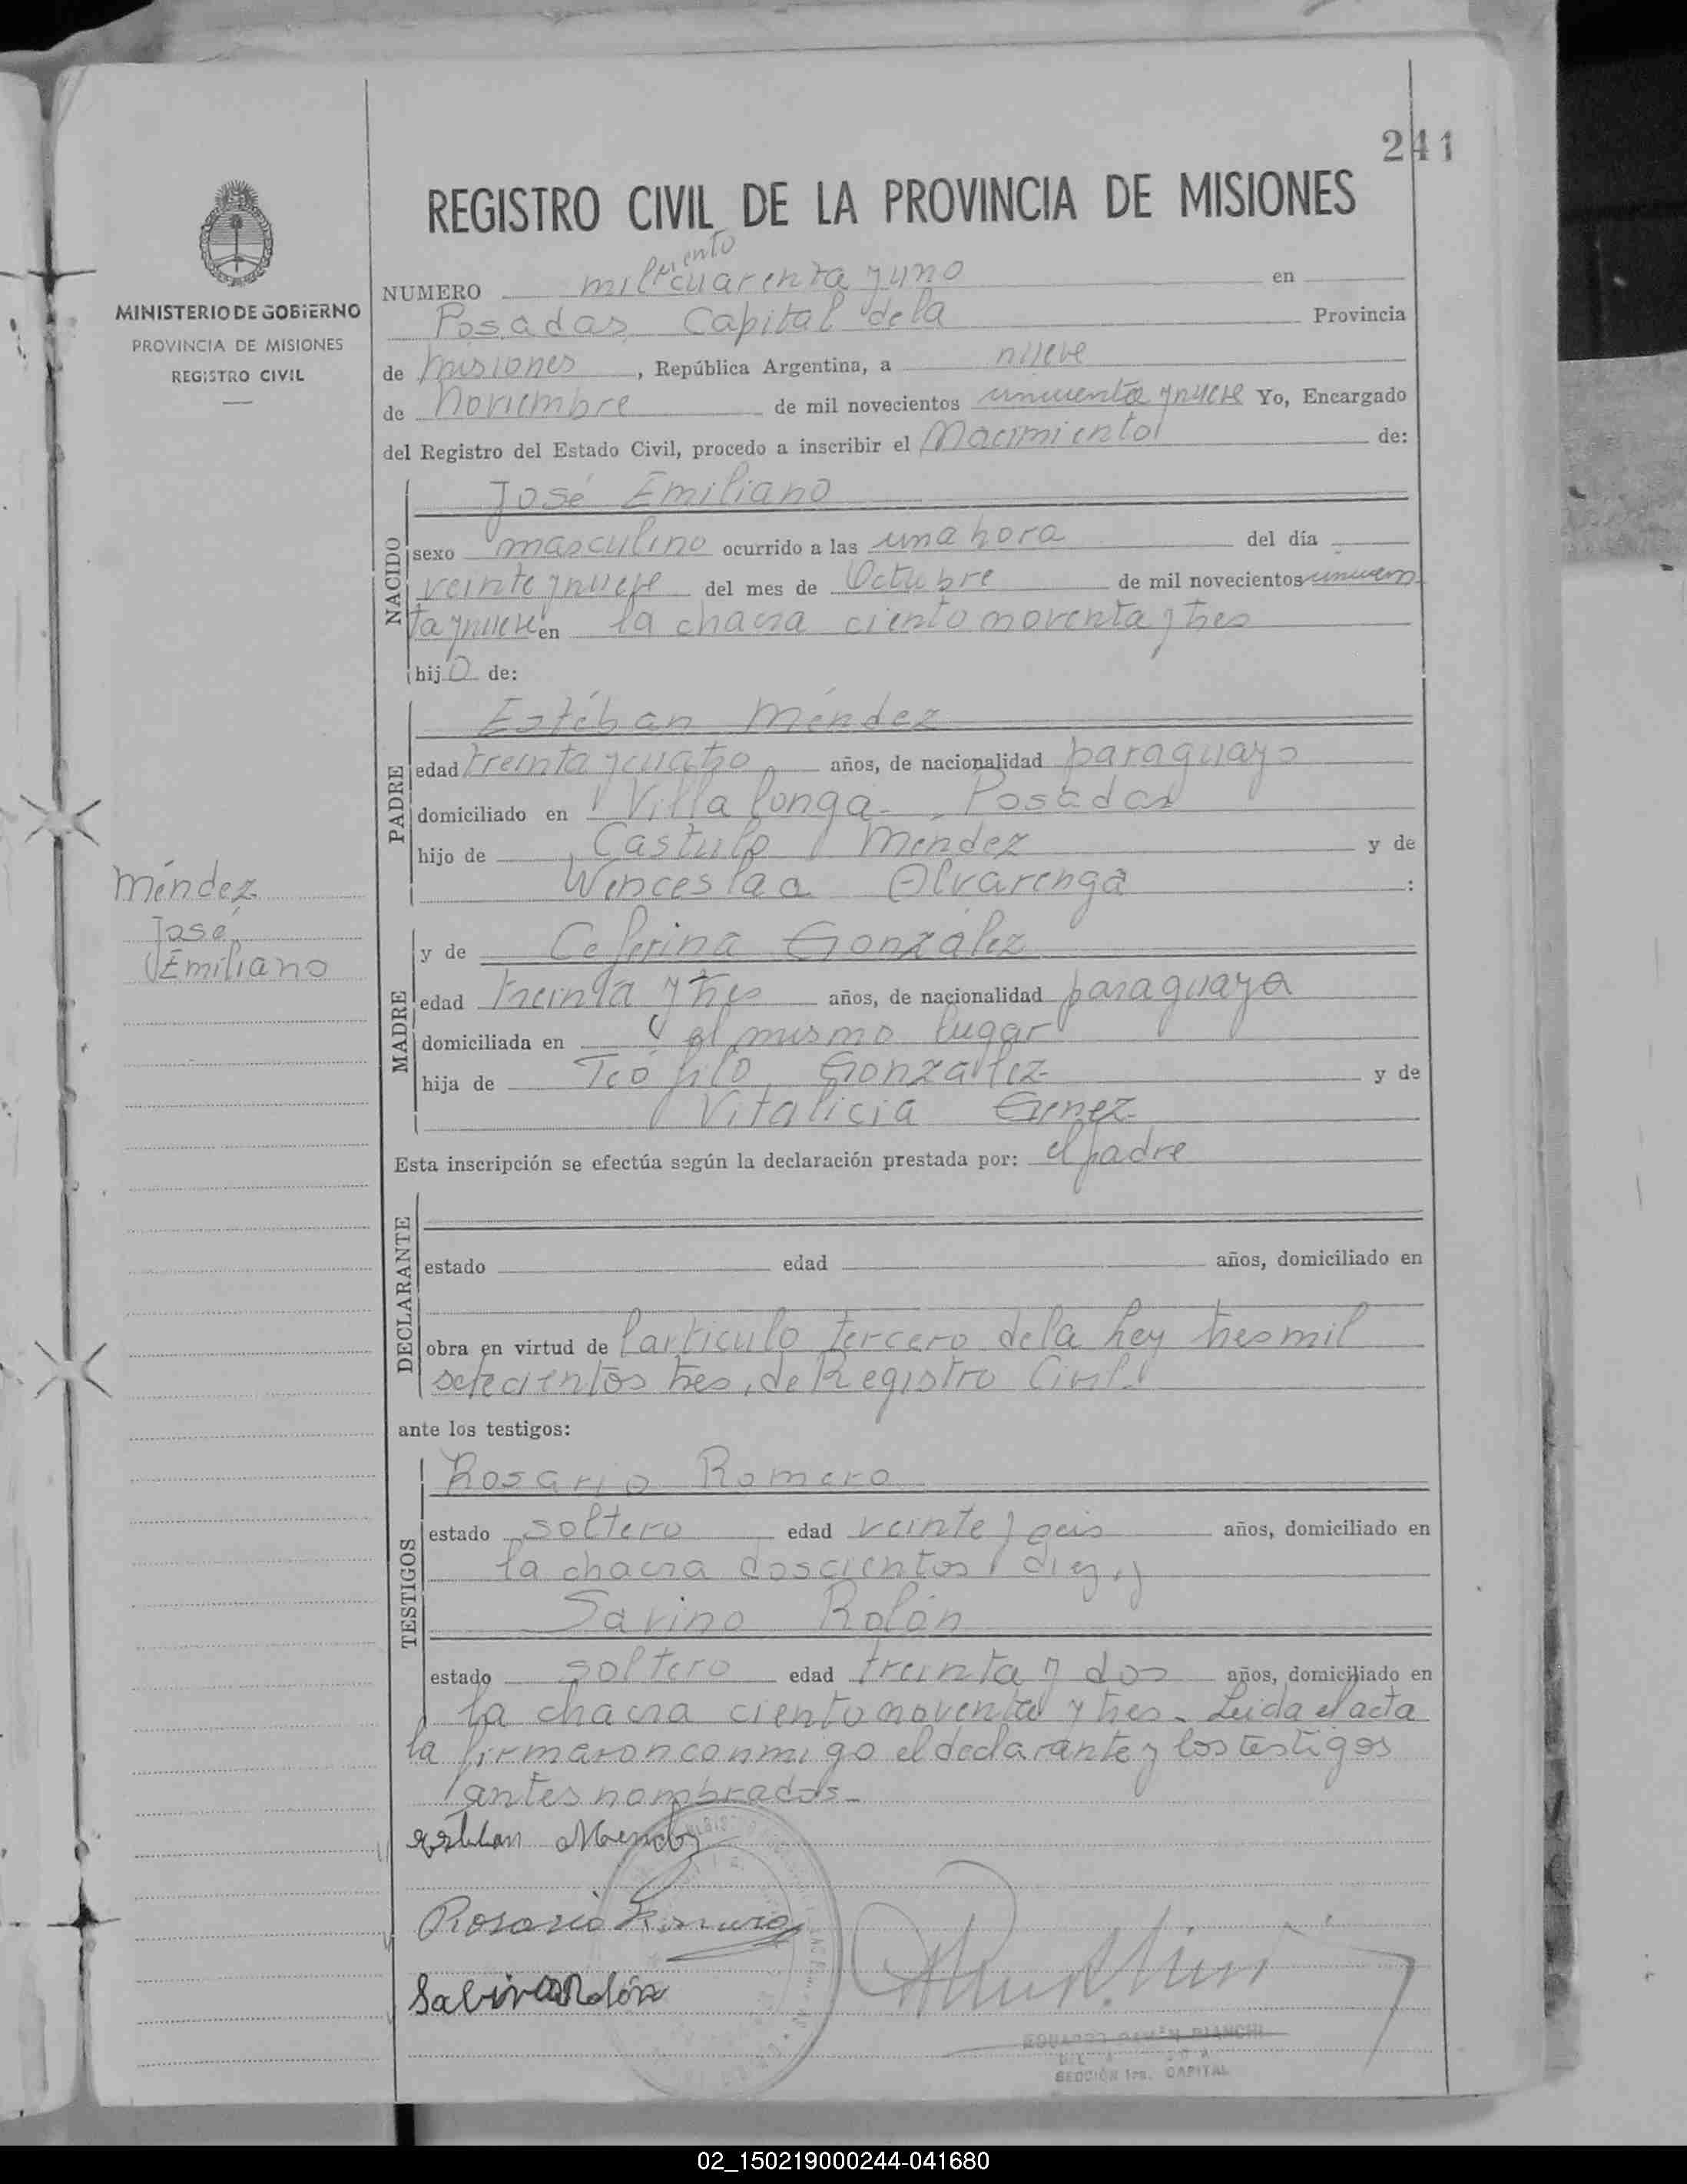 241
REGISTRO CIVIL DE LA PROVINCIA DE MISIONES
MINISTERIO DE GOBIERNO
PROVINCIA DE MISIONES
REGISTRO CIVIL
ciento
NUMERO mil cuarenta y uno en
Posadas Capital de la Provincia
de Misiones, República Argentina, a nueve
de Noviembre de mil novecientos cincuenta y nueve Yo, Encargado
del Registro del Estado Civil, procedo a inscribir el Nacimiento de:
NACIDO
José Emiliano
sexo masculino ocurrido a las una hora del día
veinte y nueve del mes de Octubre de mil novecientos cincuen
ta y nueve en la chacra ciento noventa y tres
hijo de:
PADRE
Estéban Méndez
edad treinta y cuatro años, de nacionalidad paraguayo
domiciliado en Villa longa - Posadas
hijo de Castulo Méndez y de
Wenceslaa Alvarenga :
Méndez
José
Emiliano
MADRE
y de Ceferina González
edad treinta y tres años, de nacionalidad paraguaya
domiciliada en el mismo lugar
hija de Teófilo González y de
Vitalicia
Esta inscripción se efectúa según la declaración prestada por: el padre
DECLARANTE
estado edad años, domiciliado en
obra en virtud de l'articulo tercero de la Ley tres mil
setecientos tres, de Registro Civil.
ante los testigos:
TESTIGOS
Rosario Romero
estado soltero edad veinte y seis años, domiciliado en
la chacra doscientos diez y
Savino Rolón
estado soltero edad treinta y dos años, domiciliado en
la chacra ciento noventa y tres. Leida el acta
la firmaron conmigo el declarante y los testigos
antes nombrados.
Esteban Mendez
Rosario Romero
Sabino Rolón
EDUARDO RAMÓN BIANCHI
SECCIÓN 1ra. CAPITAL
02_150219000244-041680